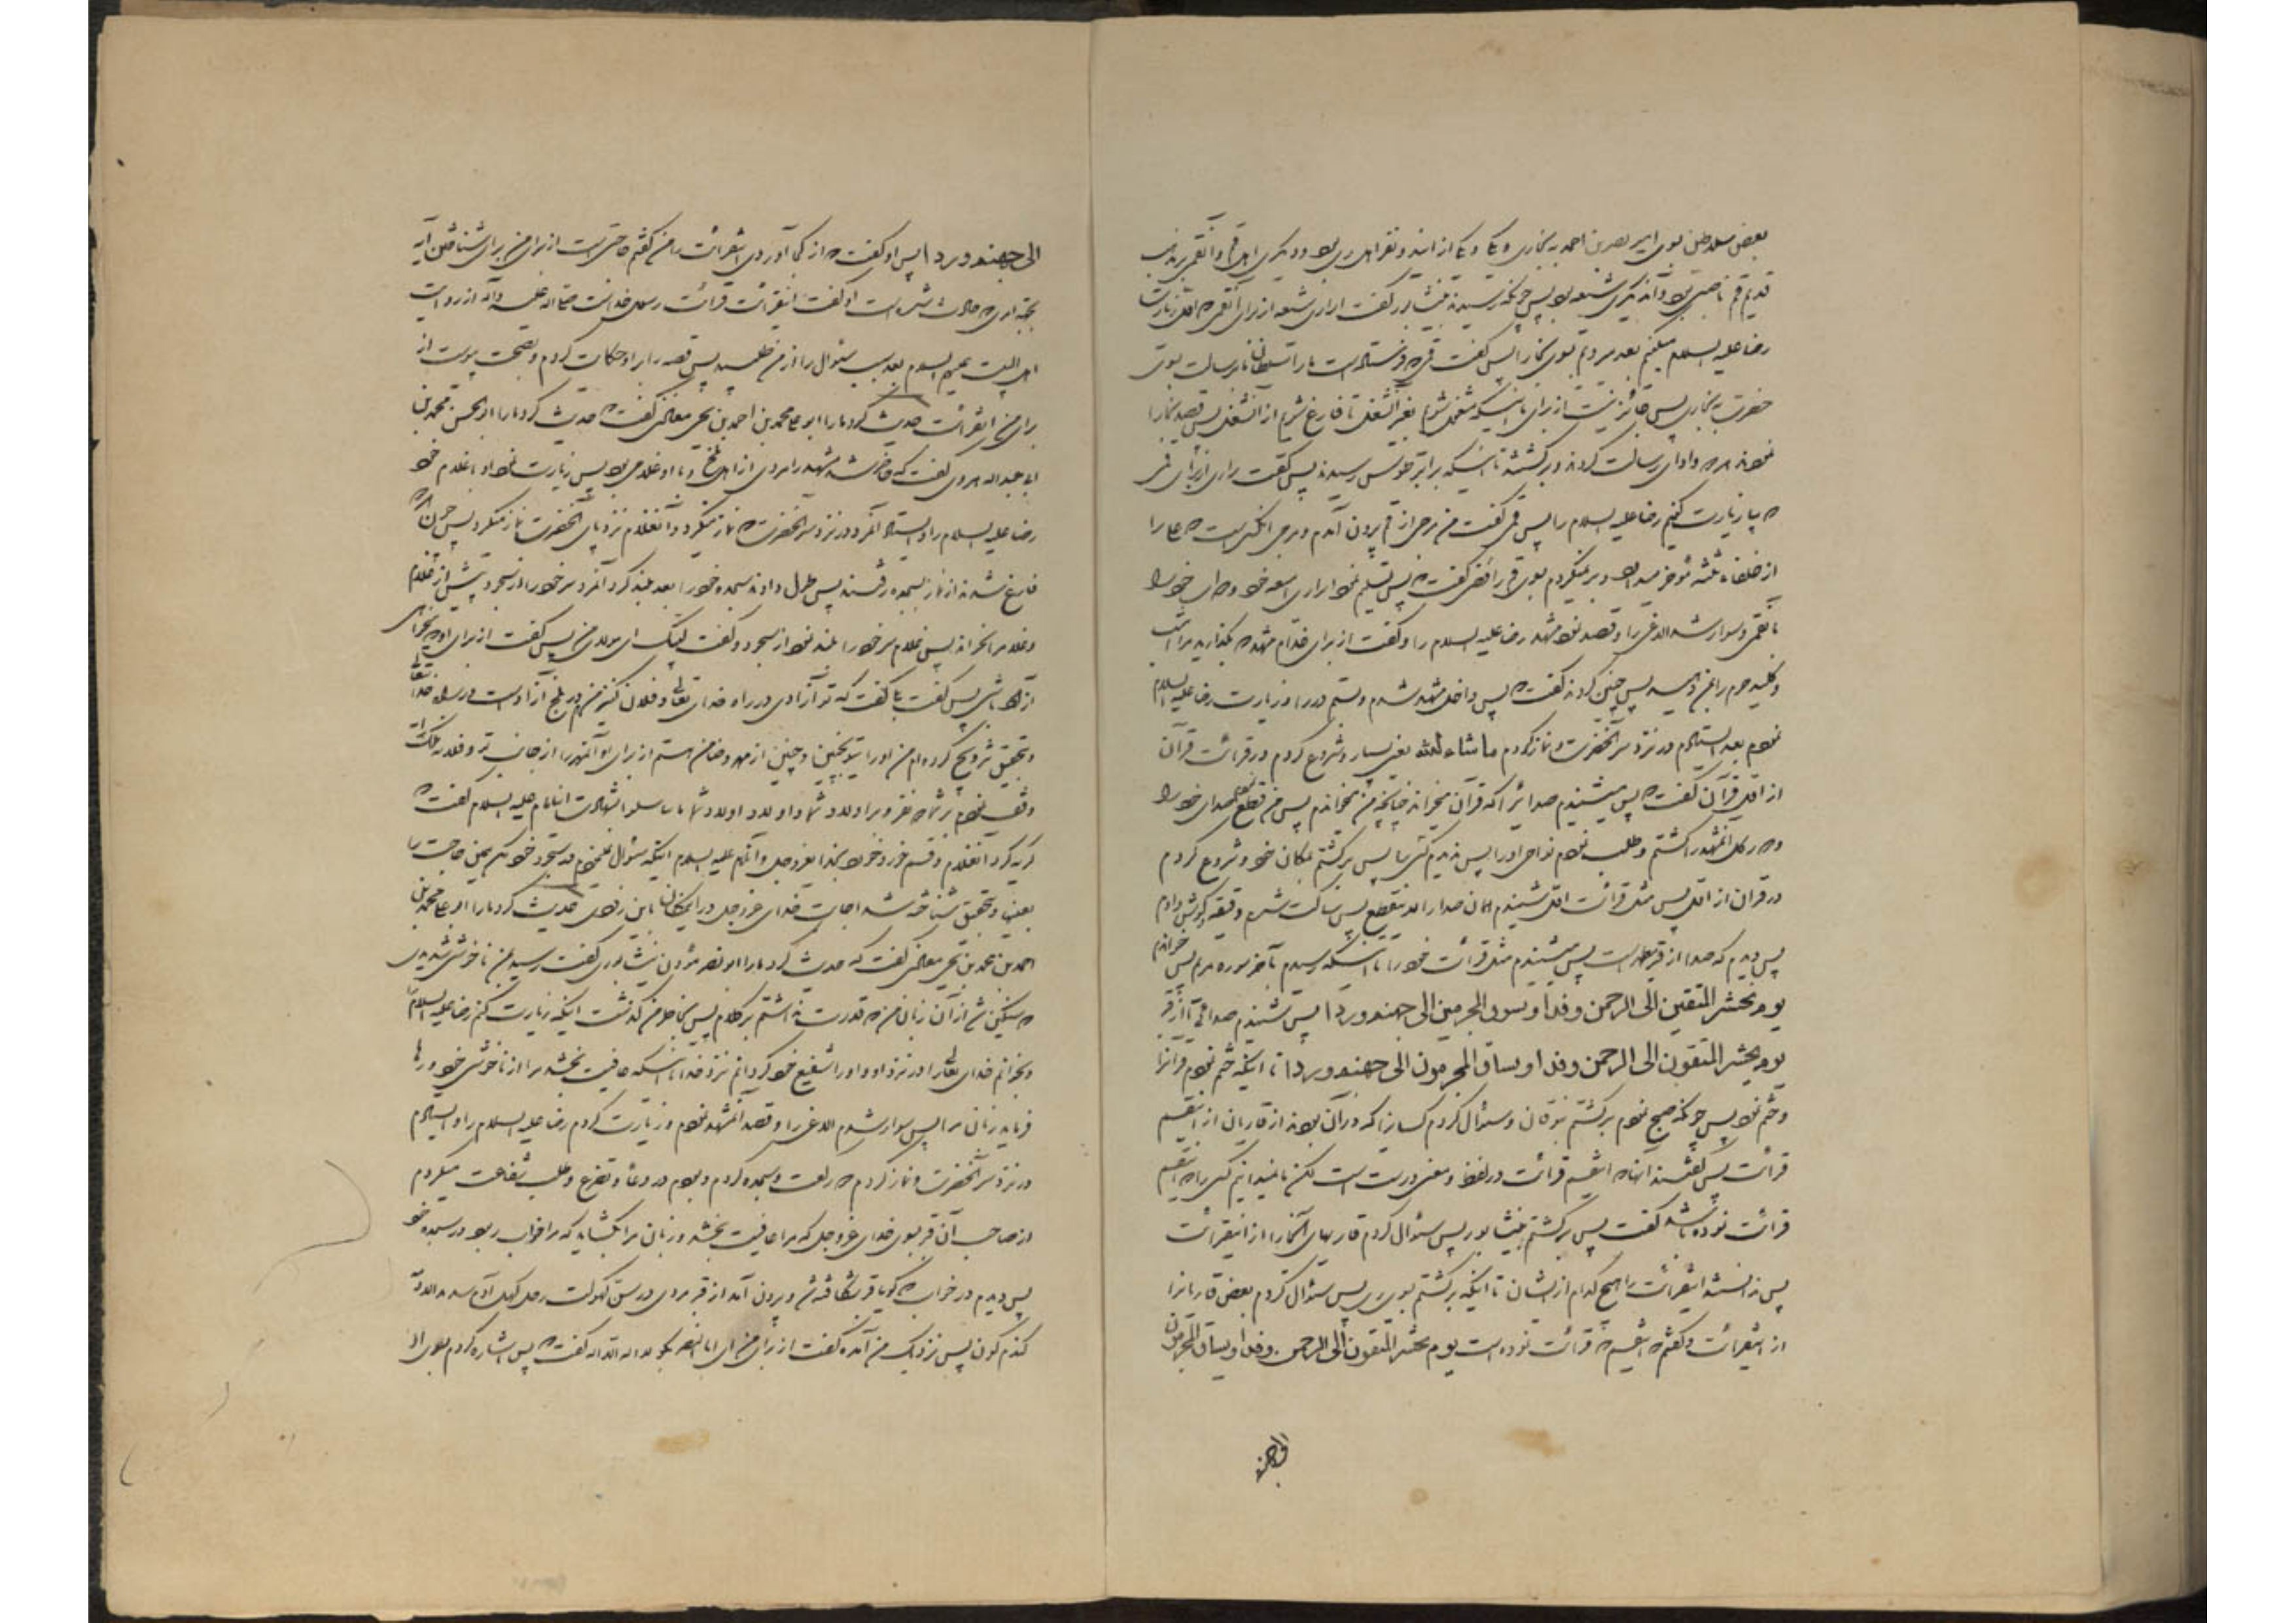 بعض سلاطین بسوی امیر نصر بن احمد به بخارا و یکی از ایندو نفر اهل ری بود و دیگری اهل قم و آنقمی بر مذهب
قدیم قم ناصبی بود و آندیگری شیعه بود پس چونکه رسیدند بنیشابور گفت آنرازی شیعه از برای آنقمی که اول زیارت
رضا علیه السلام میکنیم بعد میرویم بسوی بخارا پس گفت قمی که فرستاده است ما را سلطان ما برسالت بسوی
حضرت به بخارا پس جائز نیست از برای ما اینکه مشغول شویم بغیر آنشغل تا فارغ شویم از آنشغل پس قصد بخارا
نمودند و ادای رسالت کردند و برگشتند تا اینکه برابر طوس رسیدند پس گفت رازی از برای قمی
که بیا زیارت کنیم رضا علیه السلام را پس قمی گفت من مرجی از قم بیرون آمدم
از خلفاء ثلثه مؤخر میداند و برنمیگردم بسوی قم رافضی گفت پس تسلیم نمود آنرازی امتعه خود و خود را
بآنقمی و سوار شد الاغی را و قصد نمود مشهد رضا علیه السلام را و گفت از برای خدام مشهد که بگذارید مرا امشب
و کلید حرم را بمن دهید پس چنین کردند گفت پس داخل مشهد شدم و بستم در را و زیارت رضا علیه السلام
نمودم بعد ایستادم در نزد سر آنحضرت و نماز کردم ما شاء الله یعنی بسیار و شروع کردم در قرائت قرآن
از اول قرآن گفت که پس میشنیدم صدائیرا که قرآن میخواند چنانچه من میخواندم پس من قطع نمودم صدای خود را
و در کل آنمشهد گشتم و طلب نمودم نواحی او را پس ندیدم کسی را پس برگشتم بمکان خود و شروع کردم
در قرآن از اول پس مثل قرائت اول شنیدم همان صدا را لا ینقطع پس ساکت شدم و دقیقه گوش دادم
پس دیدم که صدا از قبر مطهر است پس میشنیدم مثل قرائت خود را تا اینکه رسیدم بآخر سوره مریم پس خواندم
یوم نحشر المتقین الی الرحمن وفدا و نسوق المجرمین الی جهنم وردا پس شنیدم صدائی از قبر
یوم یحشر المتقون الی الرحمن وفدا و یساق المجرمون الی جهنم وردا تا اینکه ختم نمودم قرآنرا
و ختم نمود پس چونکه صبح نمودم برگشتم بنوقان و سئوال کردم کسانیرا که در آن بودند از قاریان از اینقسم
قرائت پس گفتند اینقسم قرائت در لفظ و معنی درست است لکن ما نمیدانیم کسی را اینقسم
قرائت نموده باشد گفت پس برگشتم بنیشابور پس سئوال کردم قاریهای آنجا را از اینقرائت
پس ندانستند اینقرائت را هیچ کدام از ایشان تا اینکه برگشتم بسوی ری پس سئوال کردم بعض قاریانرا
از اینقرائت و گفتم قرائت نموده است یوم یحشر المتقون الی الرحمن وفدا و یساق المجرمون
الی جهنم
الی جهنم وردا پس او گفت از کجا آوردی اینقرائت را من گفتم حاجتی است از برای من برای شناختن آن
او گفت اینقرائت قرائت رسول خداست صلی الله علیه و آله از روایت
اهل البیت علیهم السلام بعد سبب سئوال را از من طلبید پس قصه را برای او حکایت کردم و بصحت پیوست از
برای من اینقرائت حدیث کرد ما را ابو علی محمد بن احمد بن یحیی معاذی گفت حدیث کرد ما را ابو الحسن محمد بن
ابی عبد الله هروی گفت که حاضر شد مشهد را مردی از اهل بلخ و با او غلامی بود پس زیارت نمود او با غلام خود
رضا علیه السلام را و ایستاد آنمرد در نزد سر آنحضرت نماز میکرد و آنغلام نزد پای آنحضرت نماز میکرد پس چون
فارغ شدند از نماز بسجده رفتند پس طول دادند سجده خود را بعد بلند کرد آنمرد سر خود را از سجود پیش از غلام
و غلام را خواند پس غلام سر خود را بلند نمود از سجود و گفت لبیک ای مولای من پس گفت از برای او که میخواهی
آزاد باشی پس گفت بلی گفت که تو آزادی در راه خدای تعالی و فلان کنیز من در بلخ آزاد است در راه خدا
و بتحقیق تزویج کرده‌ام من او را بتو بچنین و چنین از مهر و ضامن هستم از برای او آنمهر را از جانب تو و فلانه ملک من
وقف نمودم بر شما دو نفر و بر اولاد شما و اولاد اولاد شما بشهادت این امام علیه السلام گفت
گریه کرد آنغلام و قسم خورد بخدای عزوجل و آنامام علیه السلام اینکه سئوال نمینمودم در سجود خود مگر همین حاجت را
بعینها و بتحقیق شناخته شد اجابت خدای عزوجل در آنمکان باین زودی حدیث کرد ما را ابو علی محمد بن
احمد بن محمد بن یحیی معاذی گفت که حدیث کرد ما را ابو نصر مؤذن نیشابوری گفت رسید بمن ناخوشی شدیدی
که سنگین شد از آن زبان من که قدرت نداشتم بر کلام پس بخاطر من گذشت اینکه زیارت کنم رضا علیه السلام را
و بخوانم خدای تعالی را در نزد او و او را شفیع خود گردانم نزد خدا تا اینکه عافیت بخشد مرا از ناخوشی خود و رها
فرماید زبان مرا پس سوار شدم الاغی را و قصد آنمشهد نمودم و زیارت کردم رضا علیه السلام را و ایستادم
در نزد سر آنحضرت و نماز کردم دو رکعت و سجده کردم و بودم در دعا و تضرع و طلب شفاعت میکردم
از صاحب آن قبر بسوی خدای عزوجل که مرا عافیت بخشد و زبان مرا بگشاید که مرا خواب ربود در سجده خود
پس دیدم در خواب که گویا قبر شکافته شد و بیرون آمد از قبر مردی در سن کهولت رجل کهل آدم شدید الادمة
گندم گون پس نزدیک من آمده گفت از برای من ای ابا نصر بگو لا اله الا الله گفت پس اشاره کردم بسوی او